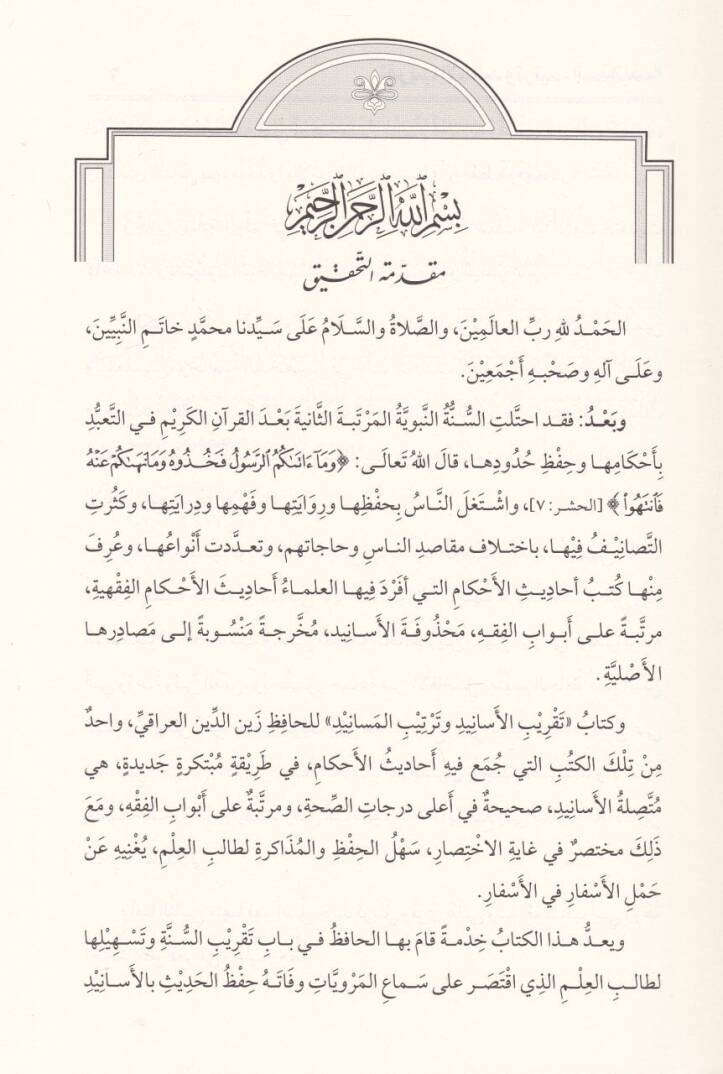 بِسْمِ اللَّهِ الرَّحْمَنِ الرَّحِيمِ
مقدمة التحقيق
الحَمْدُ للهِ ربِّ العالَمِيْنَ، والصَّلاةُ والسَّلَامُ عَلَى سَيِّدنا محمَّدٍ خاتَمِ النَّبِيِّينَ،
وعَلَى آلهِ وصَحْبهِ أَجْمَعِيْنَ.
وبَعْدُ: فقد احتَّلتِ السُّنَّةُ النَّبويَّةُ المَرْتَبةَ الثَّانيةَ بَعْدَ القرآنِ الكَرِيْمِ في التَّعبُّدِ
بِأَحْكامِها وحِفْظِ حُدُودِها، قالَ اللهُ تَعالَى: ﴿وَمَآ ءَاتَىٰكُمُ ٱلرَّسُولُ فَخُذُوهُ وَمَا نَهَىٰكُمْ عَنْهُ
فَٱنتَهُوا۟﴾ [الحشر: ٧]، واشْتغَلَ النَّاسُ بِحفْظِها ورِوَايَتِها وفَهْمِها ودِرايَتِها، وكَثُرتِ
التَّصانِيْفُ فِيْها، باختلاف مقاصدِ الناسِ وحاجاتهم، وتعدَّدت أَنْواعُها، وعُرِفَ
مِنْها كُتُبُ أحاديثِ الأَحْكامِ التي أفرَدَ فِيها العلماءُ أَحاديثَ الأَحْكامِ الفِقْهيةِ،
مرتَّبةً على أَبوابِ الفقهِ، مَحْذُوفَةَ الأسانيد، مُخَّرجةً مَنْسُوبةً إلى مَصَادِرها
الأَصْليَّةِ.
وكتابُ «تَقْرِيْبِ الأسانيدِ وتَرْتِيْبِ المَسانِيْدِ» للحافِظِ زَين الدِّين العراقيِّ، واحدٌ
مِنْ تِلْكَ الكتُبِ التي جُمَع فيهِ أَحاديثُ الأَحكامِ، في طَرِيْقةٍ مُبْتكرةٍ جَديدةٍ، هي
مُتَّصِلةُ الأَسانيدِ، صحيحةٌ في أَعلى درجاتِ الصِّحةِ، ومرتَّبةٌ على أَبْوابِ الفِقْهِ، ومَعَ
ذَلِكَ مختصرٌ في غايةِ الاخْتِصارِ، سَهْلُ الحِفْظِ والمُذَاكرةِ لطالبِ العِلْمِ، يُغْنِيهِ عَنْ
حَمْلِ الأَسْفارِ في الأَسْفارِ.
ويعدُّ هذا الكتابُ خِدْمةً قامَ بها الحافظُ في بابِ تَقْرِيْبِ السُّنَّةِ وتَسْهِيْلِها
لطالبِ العِلْمِ الذِي اقْتَصَر على سَماعِ المَرْويَّاتِ وفَاتَهُ حِفْظُ الحَدِيْثِ بالأَسانِيْدِ